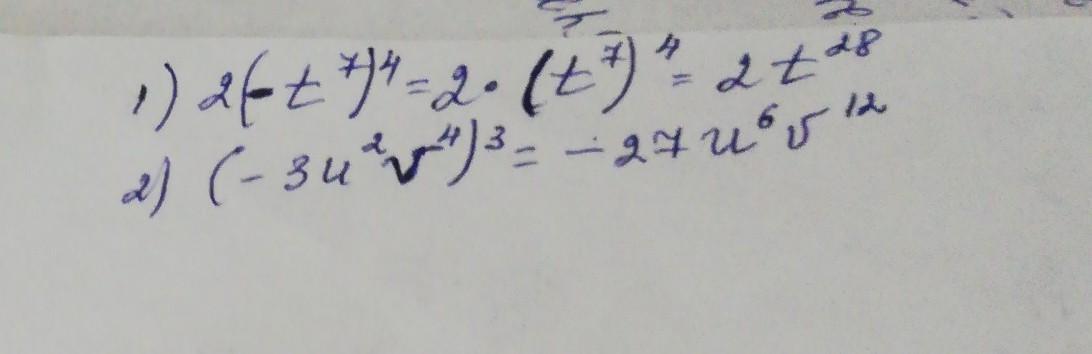 1) 2(-t⁷)⁴ = 2 · (t⁷)⁴ = 2t²⁸
2) (-3u²v⁴)³ = -27u⁶v¹²